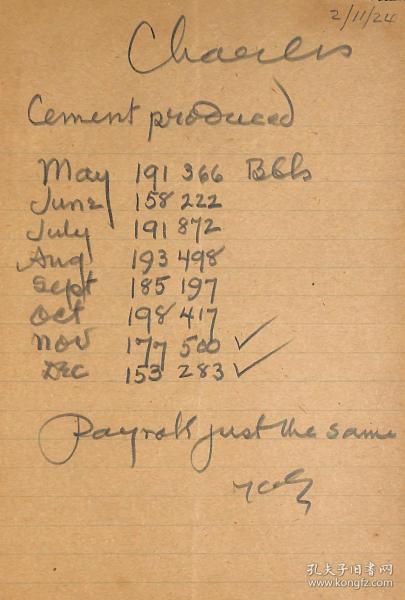 2/11/24
Charles
Cement produced
May 191 366 Bbls
June 158 222
July 191 872
Aug 193 498
Sept 185 197
Oct 198 417
Nov 177 500 ✓
Dec 153 283 ✓
Payroll just the same
孔夫子旧书网
www.kongfz.com